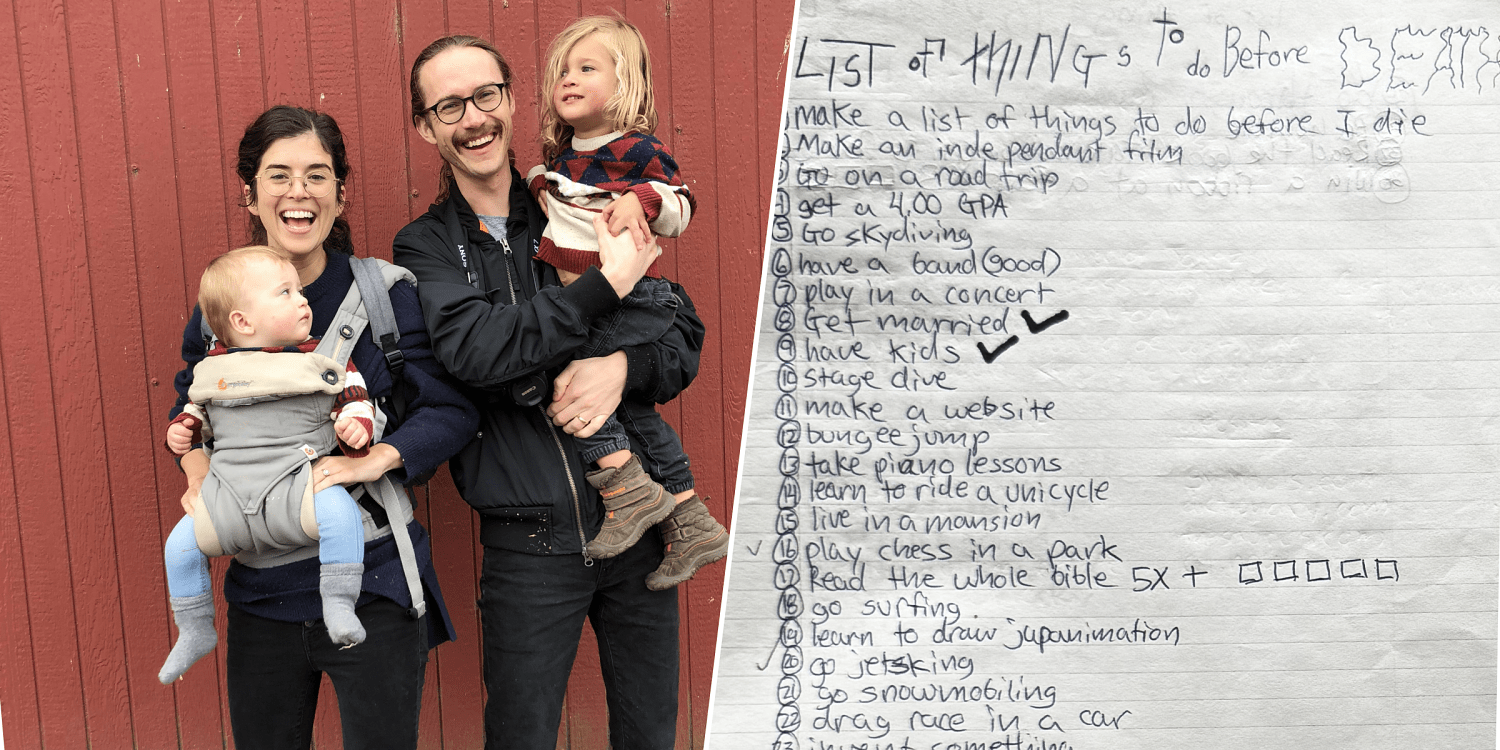 LIST of THINGS To do Before DEATH
1 make a list of things to do before I die
2 Make an independant film
3 Go on a road trip
4 get a 4.00 GPA
5 Go skydiving
6 have a band (good)
7 play in a concert
8 Get married ✓
9 have kids ✓
10 stage dive
11 make a website
12 bungee jump
13 take piano lessons
14 learn to ride a unicycle
15 live in a mansion
✓ 16 play chess in a park
17 Read the whole bible 5X + □□□□□
18 go surfing.
19 learn to draw japanimation
✓ 20 go jetsking
21 go snowmobiling
22 drag race in a car
23 invent something